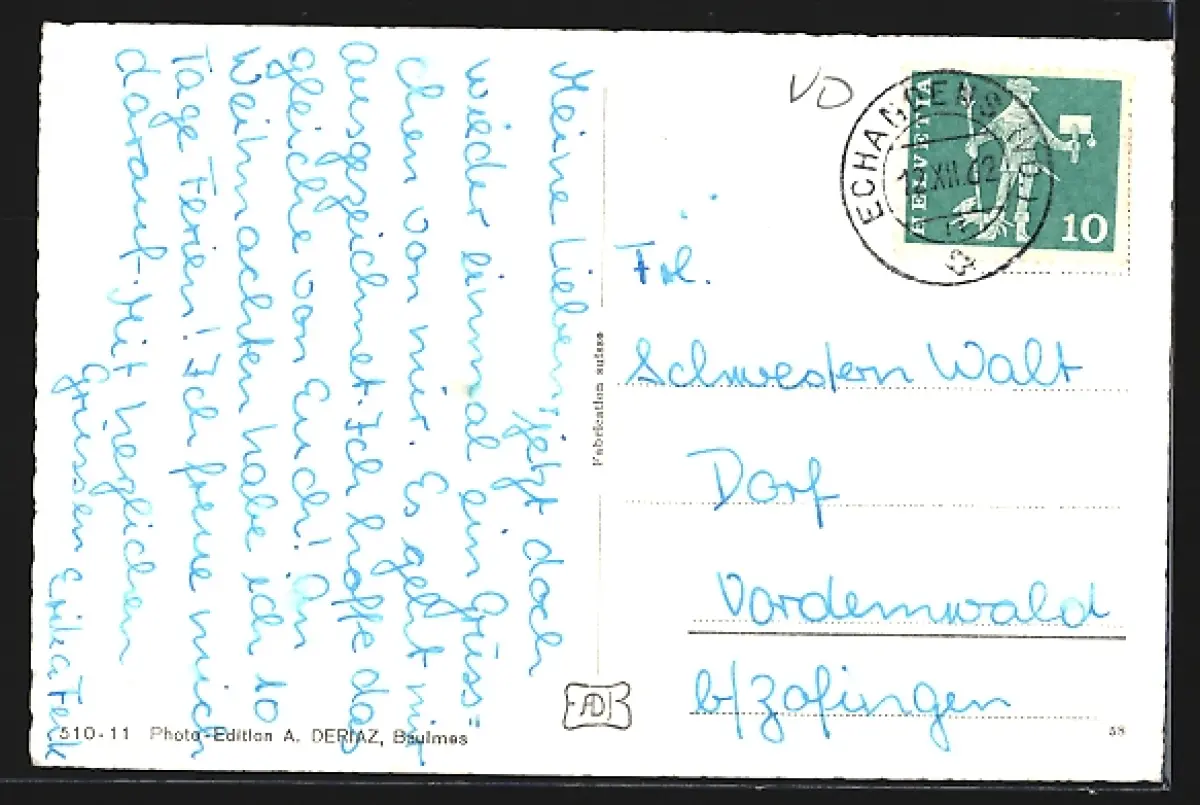 Meine Lieben, jetzt doch
wieder einmal ein Grüss-
chen von mir. Es geht mir
ausgezeichnet. Ich hoffe das
gleiche von Euch! An
Weihnachten habe ich 10
Tage Ferien! Ich freue mich
darauf. Mit herzlichen
Grüssen Erika
510-11 Photo-Edition A. DERIAZ, Baulmes
Fabrication suisse
AD
VD
ECHANDENS
XII.62
HELVETIA
10
Frl.
Schwestern Walt
Dorf
Vordemwald
b/Zofingen
58